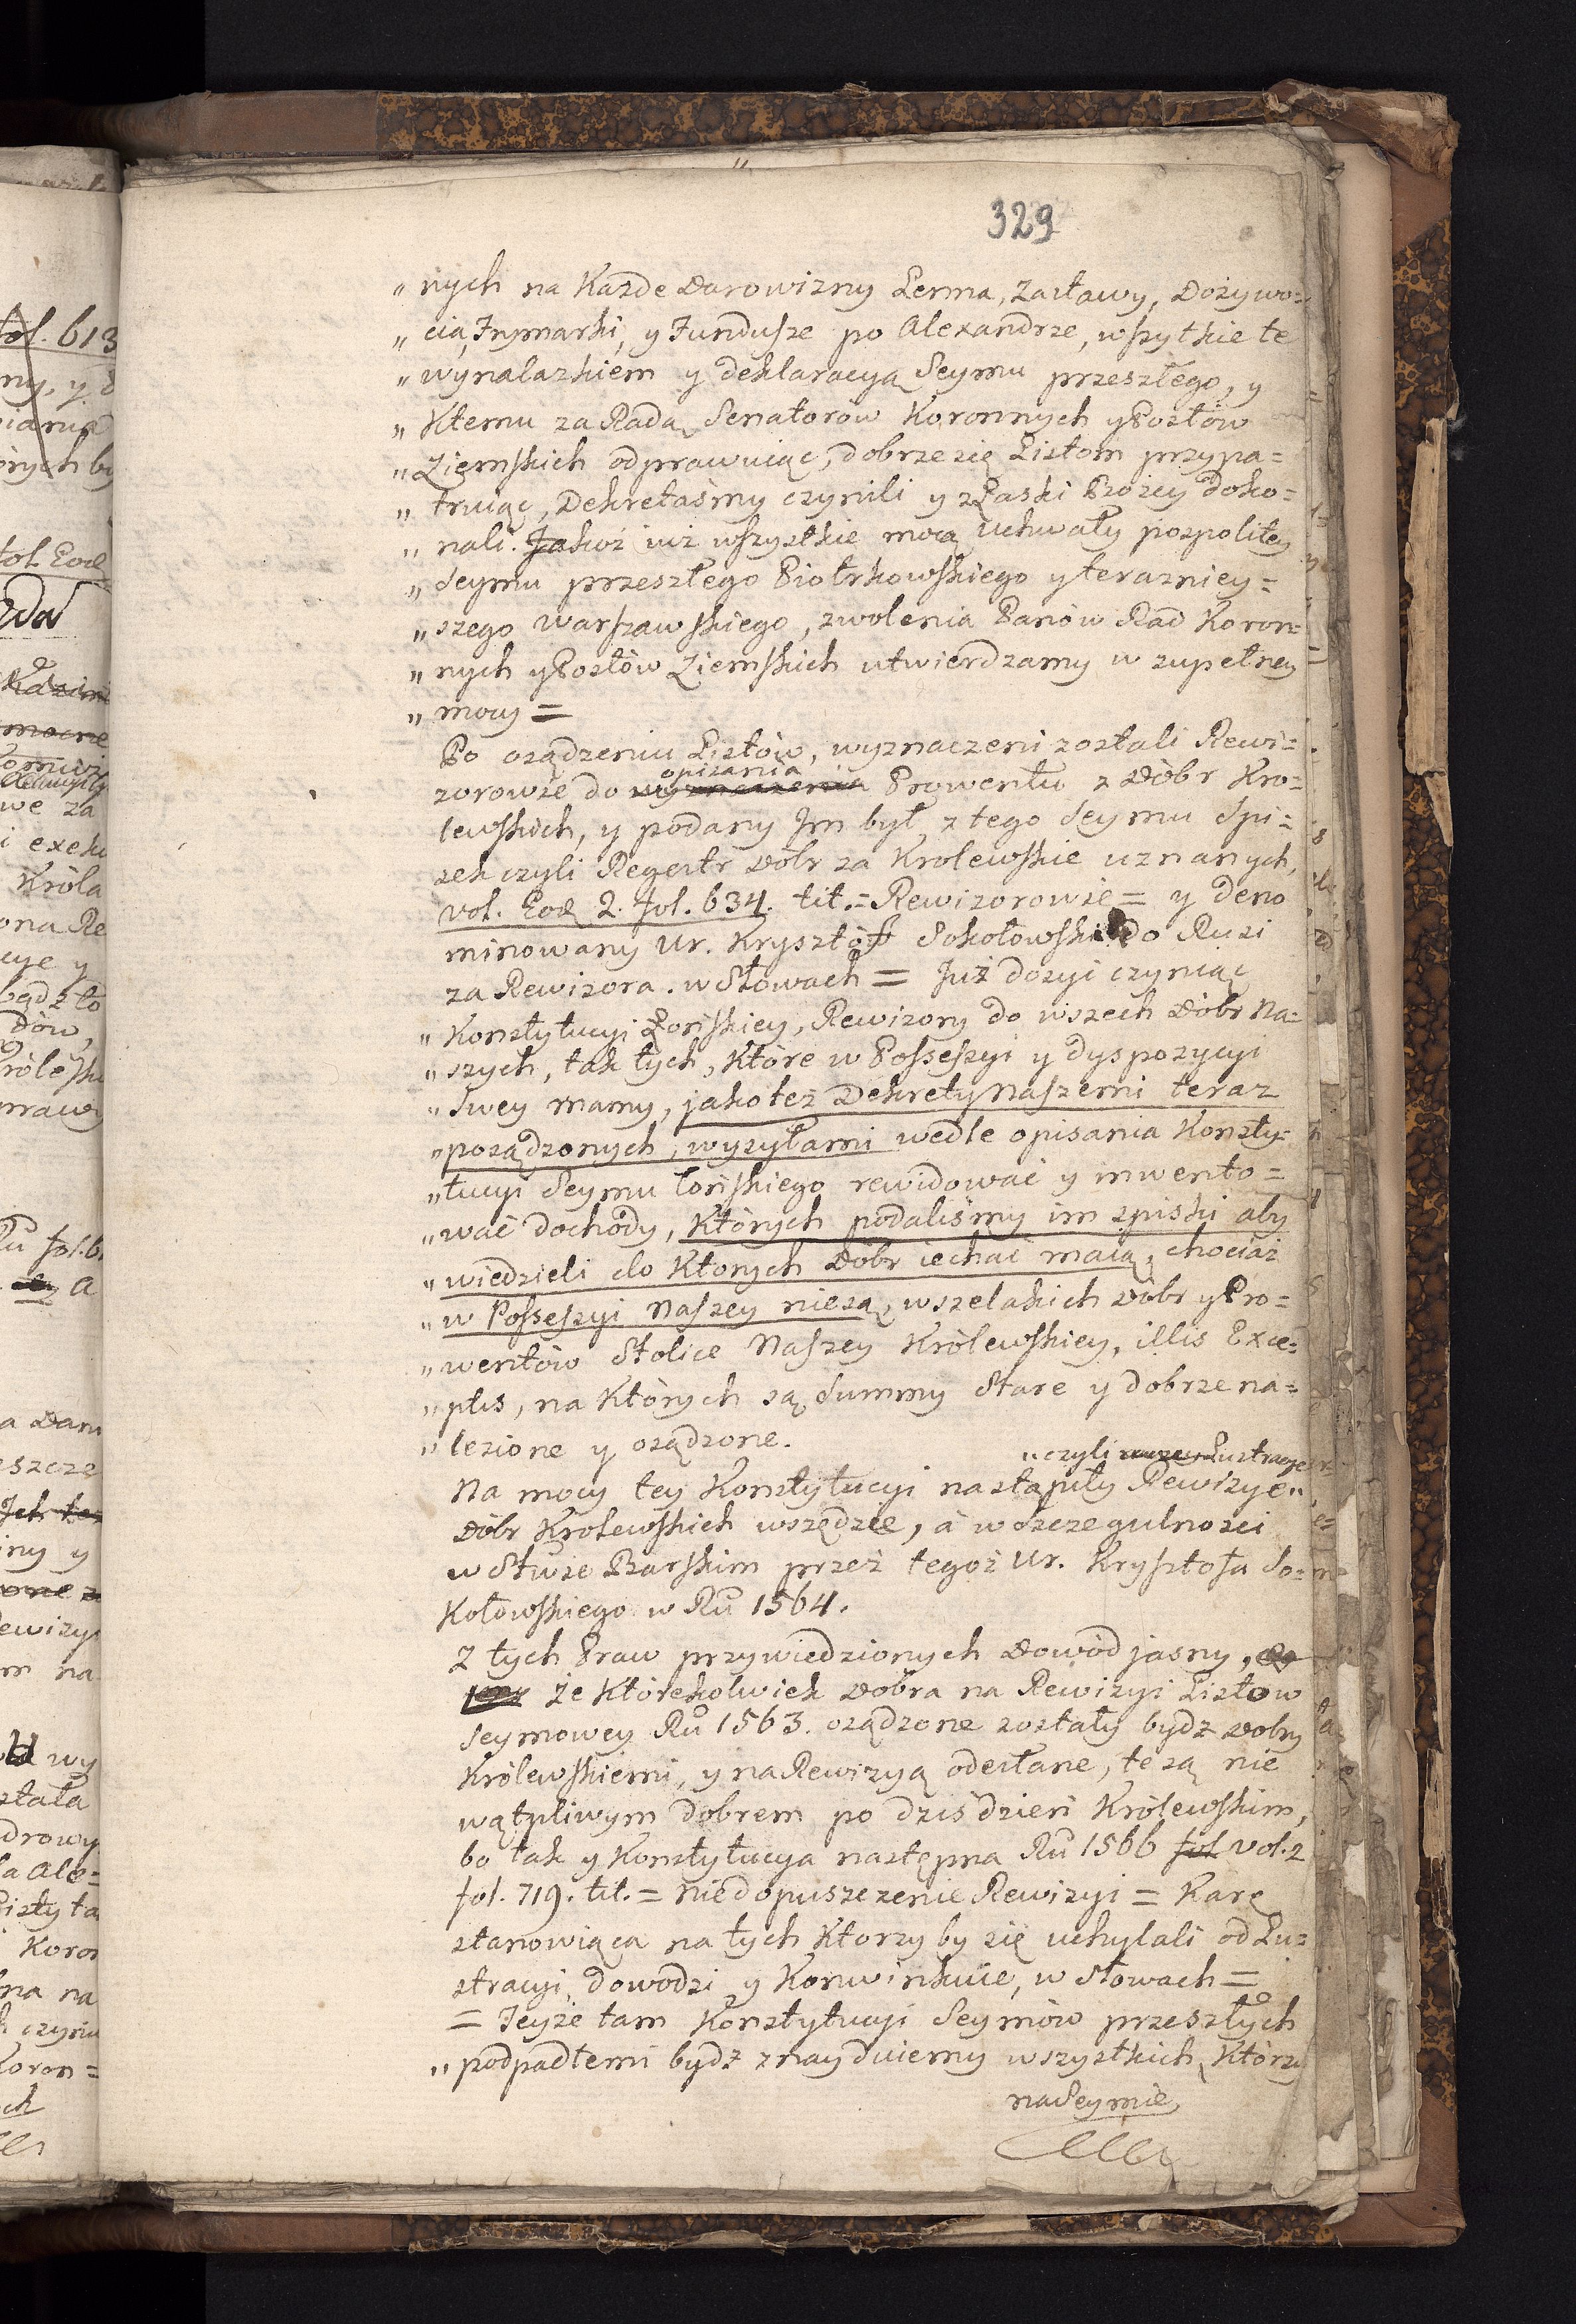 329
„ nych na Każde Darowizny Lenna, Zastawy, Dożywo=
„ cia, Frymarki, y Fundusze po Alexandrze, wszytkie te
„ wynalazkiem y deklaracyą Seymu przeszłego, y
„ Ktemu za Radą Senatorów Koronnych y Posłów
„ Ziemskich odprawuiąc, dobrze się Listom przypa=
„ truiąc, Dekretaśmy czynili y z Łaski Bożey doko=
„ nali. Jakoż iuż wszystkie mocą uchwały pospolitey
„ Seymu przeszłego Piotrkowskiego y terazniey=
„ szego Warszawskiego, zwolenia Panów Rad Koron=
„ nych y Posłów Ziemskich utwierdzamy w zupełney
„ mocy =
Po osądzeniu Listów, wyznaczeni zostali Rewi=
opisania
zorowie do wyznaczenia Prowentu z Dóbr Kro=
lewskich, y podany Im był z tego Seymu Spi=
sek czyli Regestr Dóbr za Krolewskie uznanych,
vol. Eod 2. fol. 634. tit. = Rewizorowie = y deno
minowany Ur. Krysztóf Sokołowski do Rusi
za Rewizora. w Słowach = Już dosyi czyniąc
„ Konstytucyi Łońskiey, Rewizory do wszech Dóbr Na=
„ szych, tak tych, Które w Possessyi y dyspozycyi
„ Swey mamy, jako też Dekrety Naszemi teraz
„ posądzonych, wysyłami wedle opisania Konsty=
„ tucyi Seymu łońskiego rewidować y inwento=
„ wać dochody, Których podaliśmy im spiski aby
„ wiedzieli do Ktorych Dóbr iechać maią, chociaż
„ w Possessyi Naszey nie są, wszelakich Dóbr y Pro=
„ wentów Stolice Naszey Królewskiey, illis Exce=
„ ptis, na Których są Summy Stare y dobrze na=
„ lezione y osądzone.
„ czyli Lustracye
Na mocy tey Konstytucyi nastąpiły Rewizye „
Dóbr Krolewskich wszędzie, á w szczegulnosci
w Stwie Barskim przez tegoż Ur. Krysztofa So=
Kołowskiego w Rŭ 1564.
Z tych Praw przywiedzionych Dowód jasny,
że Którekolwiek Dobra na Rewizyi Listow
Seymowey Rŭ 1563. osądzone zostały bydz Dobry
Królewskiemi, y na Rewizyą odesłane, te są nie
wątpliwym dobrem po dziś dzień Królewskim,
bo tak y Konstytucya następna Rŭ 1566 fol vol. 2
fol. 719. tit. = niedopuszczenie Rewizyi = Karę
stanowiąca na tych Ktorzy by się uchylali od Lu=
stracyi, dowodzi y Konwinkuie, w Słowach =
= Teyże tam Konstytucyi Seymów przeszłych
„ podpadłemi bydź znayduiemy wszystkich, Którzy
na Seymie